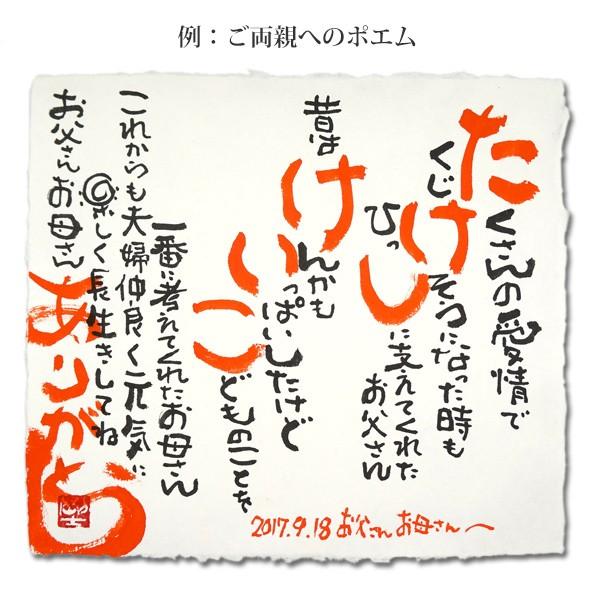 例：ご両親へのポエム
たくさんの愛情で
くじけそうになった時も
ひっしに支えてくれた
お父さん
昔はけんかも
いっぱいしたけど
こどものことを
一番に考えてくれたお母さん
これからも夫婦仲良く元気に
楽しく長生きしてね
お父さんお母さん
ありがとう
2017.9.18 お父さん お母さんへ